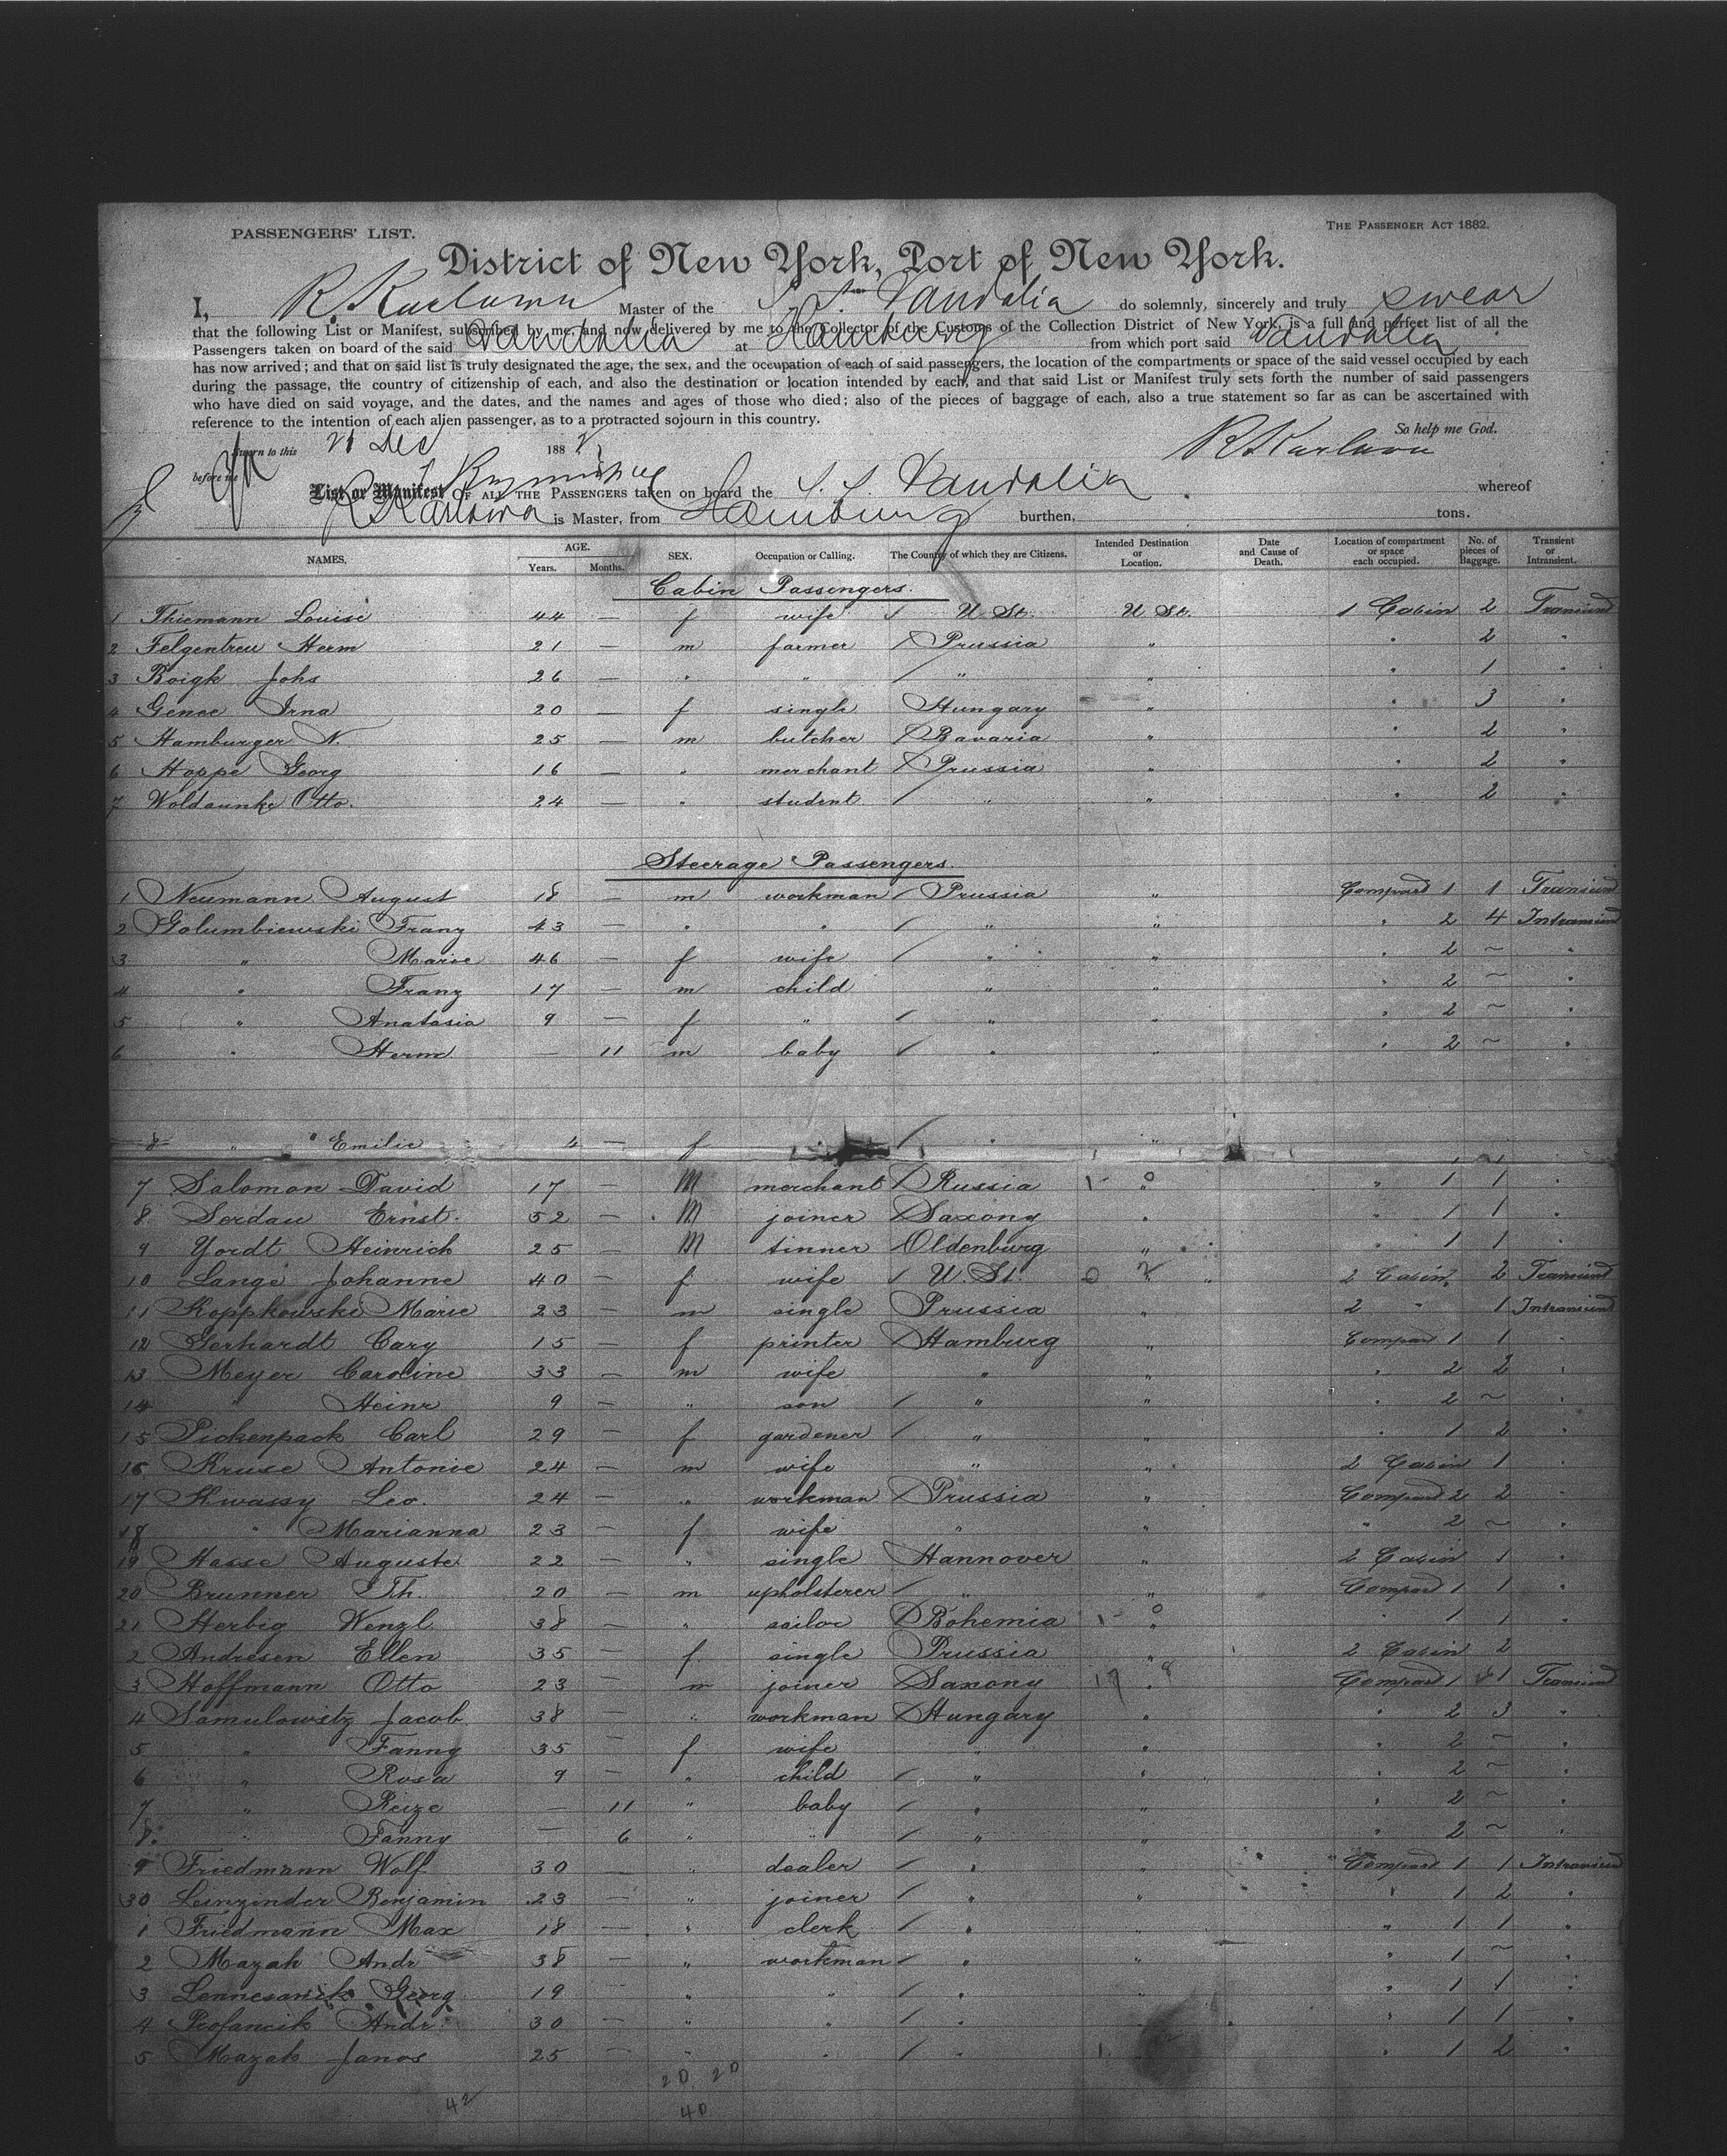 PASSENGERS' LIST.
THE PASSENGER ACT 1882.
District of New York, Port of New York.
I, R. Karlowa Master of the S. S. Vandalia do solemnly, sincerely and truly swear
that the following List or Manifest, subscribed by me, and now delivered by me to the Collector of the Customs of the Collection District of New York, is a full and perfect list of all the
Passengers taken on board of the said Vandalia at Hamburg from which port said Vandalia
has now arrived; and that on said list is truly designated the age, the sex, and the occupation of each of said passengers, the location of the compartments or space of the said vessel occupied by each
during the passage, the country of citizenship of each, and also the destination or location intended by each, and that said List or Manifest truly sets forth the number of said passengers
who have died on said voyage, and the dates, and the names and ages of those who died; also of the pieces of baggage of each, also a true statement so far as can be ascertained with
reference to the intention of each alien passenger, as to a protracted sojourn in this country.
So help me God.
Sworn to this 21 Dec 188
R. Karlowa
before me
List or Manifest OF ALL THE PASSENGERS taken on board the S. S. Vandalia whereof
R Karlowa is Master, from Hamburg burthen, tons.
NAMES. AGE. Years. Months. SEX. Occupation or Calling. The Country of which they are Citizens. Intended Destination or Location. Date and Cause of Death. Location of compartment or space each occupied. No. of pieces of Baggage. Transient or Intransient.
Cabin Passengers.
1 Thiemann Louise 44 — f wife / U. St. U. St. 1 Cabin 2 Transient
2 Felgentreu Herm 21 — m farmer / Prussia " " 2 "
3 Roigk Johs 26 — " " / " " " 1 "
4 Genee Irna 20 — f single Hungary " " 3 "
5 Hamburger N. 25 — m butcher / Bavaria " " 2 "
6 Hoppe Georg 16 — " merchant / Prussia " " 2 "
7 Woldaunke Otto. 24 — " student / " " " 2 "
Steerage Passengers.
1 Neumann August 18 — m workman / Prussia " Compard 1 1 Transient
2 Golumbiewski Franz 43 — " " / " " " 2 4 Intransient
3 " Marie 46 — f wife / " " " 2 ~ "
4 " Franz 17 — m child " " " 2 ~ "
5 " Anatasia 9 — f " / " " " 2 ~ "
6 " Herm. — 11 m baby / " " " 2 ~ "
8 " Emilie 4 — f / " "
7 Salomon David 17 — M merchant / Russia 1 - 0 " " 1 1 "
8 Serdau Ernst. 52 — M joiner / Saxony " " 1 1 "
9 Yordt Heinrich 25 — M tinner / Oldenburg " " 1 1 "
10 Lange Johanne 40 — f wife / U. St. 2 Cabin 2 Transient
11 Koppkowski Marie 23 — m single Prussia " 2 " 1 Intransient
12 Gerhardt Cary 15 — f printer / Hamburg " Compard 1 1 "
13 Meyer Caroline 33 — m wife " " " 2 2 "
14 " Heinr 9 — " son / " " " 2 ~ "
15 Pickenpack Carl 29 — f gardener / " " " 1 2 "
16 Kruse Antonie 24 — m wife " " 2 Cabin 1 "
17 Kwassy Leo. 24 — " workman / Prussia " Compard 2 2 "
18 " Marianna 23 — f wife " " " 2 ~ "
19 Hasse Auguste 22 — " single Hannover " 2 Cabin 1 "
20 Brunner Th. 20 — m upholsterer / " " Compard 1 1 "
21 Herbig Wenzl. 38 — " sailor / Bohemia 1 - 0 " " 1 1 "
2 Andresen Ellen 35 — f single Prussia " 2 Cabin 2
3 Hoffmann Otto 23 — m joiner / Saxony " Compard 1 1 Transient
4 Samulowitz Jacob 38 — " workman / Hungary " " 2 3 "
5 " Fanny 35 — f wife " " " 2 ~ "
6 " Rosa 9 — " child / " " " 2 ~ "
7 " Reize — 11 " baby / " " " 2 ~ "
8. " Fanny — 6 " " / " " " 2 ~ "
9 Friedmann Wolf 30 — " dealer / " " Compard 1 1 Intransient
30 Leinzinder Benjamin 23 — " joiner / " " " 1 2 "
1 Friedmann Max 18 — " clerk / " " 1 1 "
2 Mazak Andr 38 — " workman / " " " 1 ~ "
3 Lennesanik Georg 19 — " " / " " 1 1 "
4 Profancik Andr. 30 — " " / " " 1 1 "
5 Mazak Janos 25 — " " / " 1 " 1 2 "
20 20
42
40